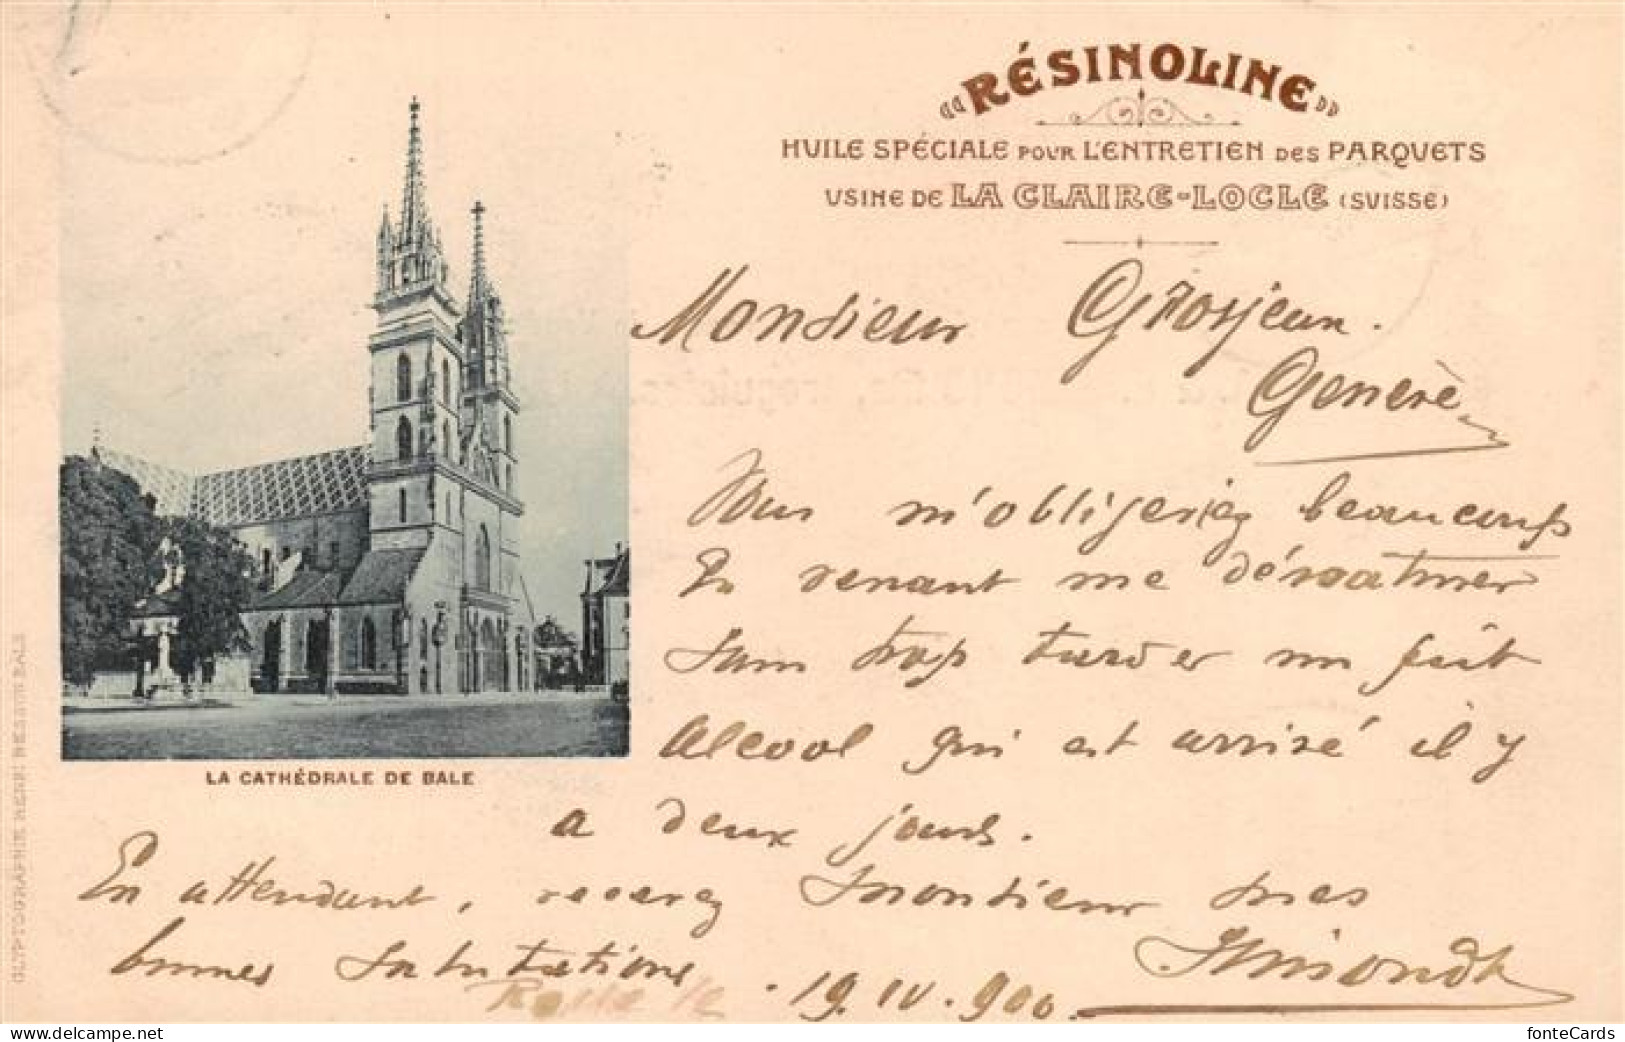 «RÉSINOLINE»
HUILE SPÉCIALE POUR L'ENTRETIEN DES PARQUETS
USINE DE LA CLAIRE-LOCLE (SUISSE)
Monsieur Grosjean.
Genève
Vous m'obligeriez beaucoup
En venant me dénaturer
sans trop tarder un fût
alcool qui est arrivé il y
a deux jours.
En attendant, recevez Monsieur mes
bonnes salutations
19.IV.900
LA CATHÉDRALE DE BALE
GLYPTOGRAPHIE HENRI BESSON BALE
delcampe.net
fonteCards